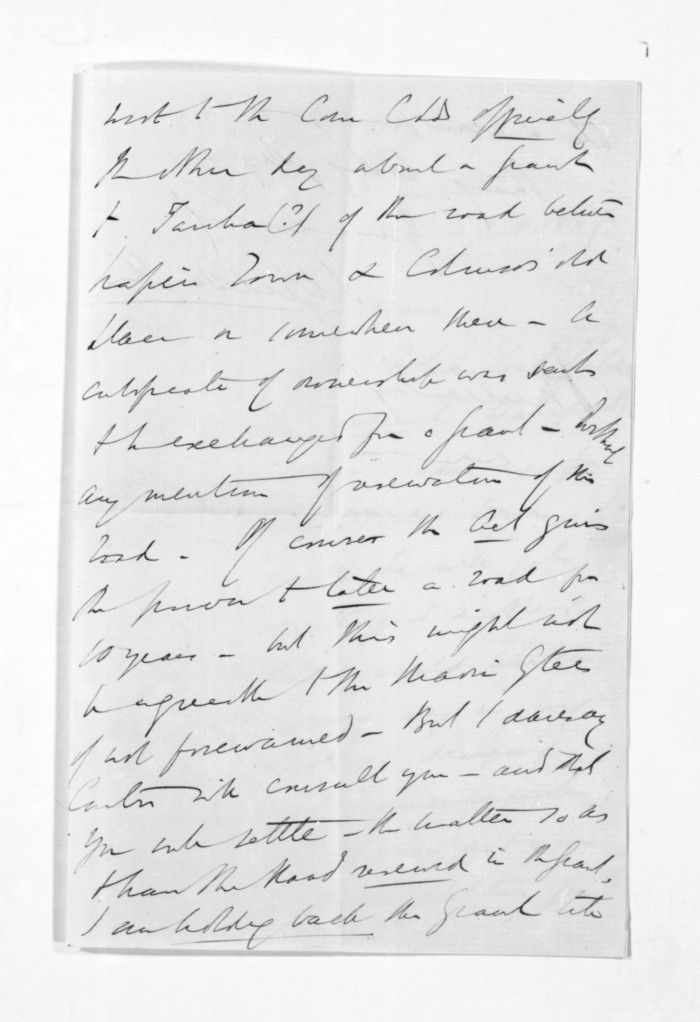 wrote to the Com Cllds officially
the other day about a Grant
to Tareha (?) of the road between
Napier Town & Colenso's old
place or somewhere there – a
certificate of ownership was sent
to the exchanged for a grant – without
any mention of reservation of this
road – Of course the Act gives
the power to take a road for
10 years – but this might not
be agreeable to the Maori Gtees
if not forewarned – But I daresay
will consult you – and that
you will settle – the matter so as
to have the Road reserved in the Grant.
I am holding back the Grant